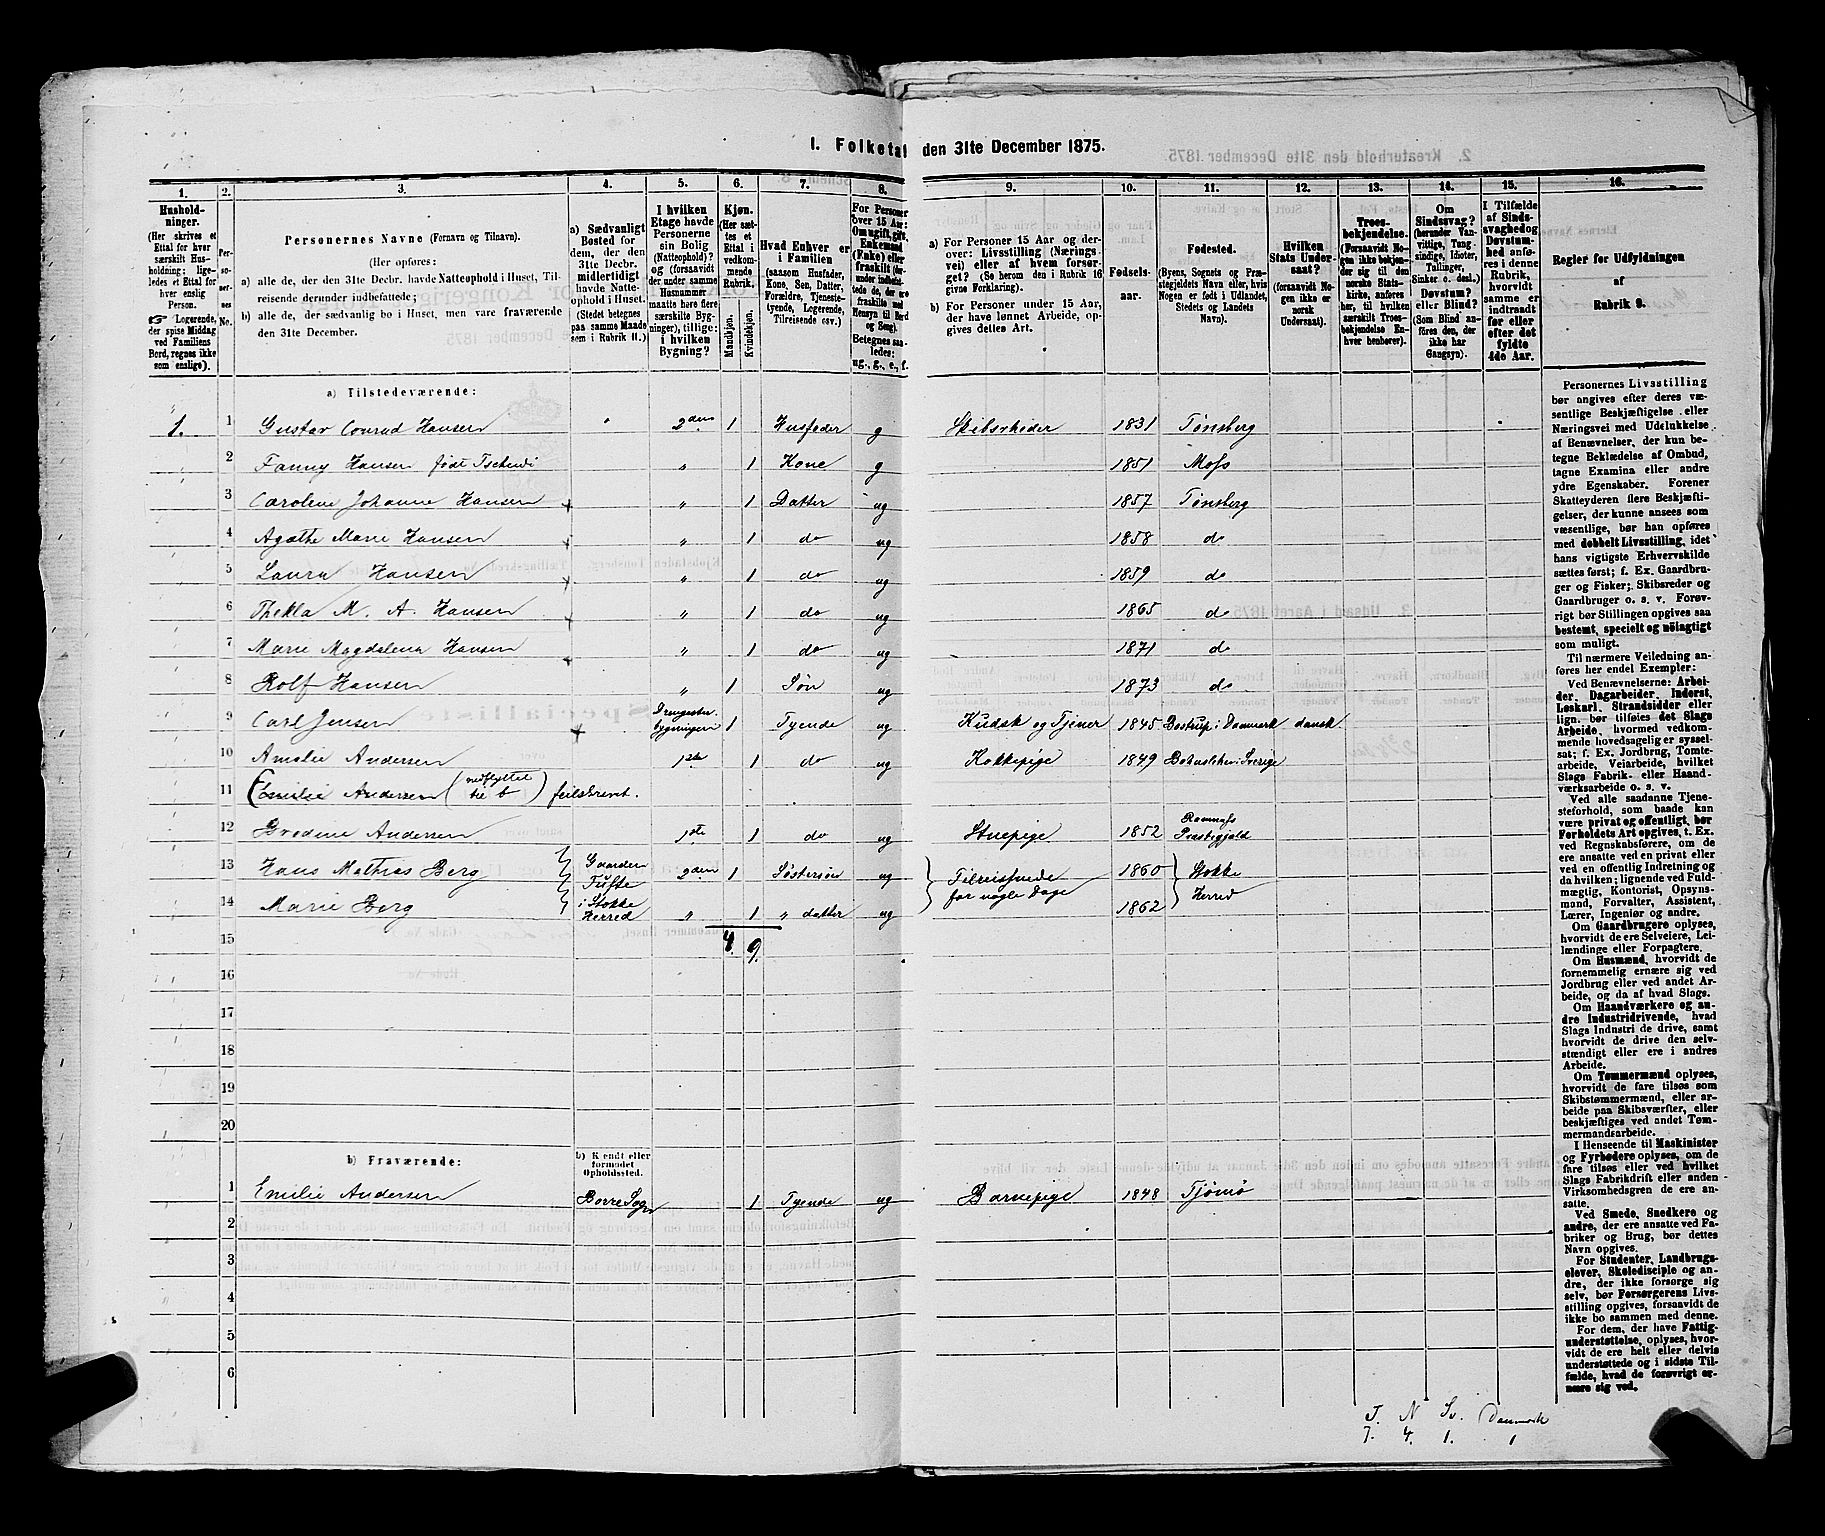 I. Folketal den 31te December 1875.
1. 2. 3. 4. 5. 6. 7. 8. 9. 10. 11. 12. 13. 14. 15. 16.
Husholdninger.
(Her skrives et
Ettal for hver
særskilt Husholdning; ligeledes et Ettal
for hver enslig
Person.
☞ Logerende,
der spise Middag
ved Familiens
Bord, regnes ikke
som enslige).
Personernes No.
Personernes Navne (Fornavn og Tilnavn).
(Her opføres:
a) alle de, der den 31te Decbr. havde Natteophold i Huset, Tilreisende derunder indbefattede;
b) alle de, der sædvanlig bo i Huset, men vare fraværende
den 31te December.
a) Sædvanligt
Bosted for
dem, der den
31te Decbr.
midlertidigt
havde Natteophold i Huset.
(Stedet betegnes
paa samme Maade
som i Rubrik 11.)
I hvilken
Etage havde
Personerne
sin Bolig
(Natteophold)?
og (forsaavidt
der under samme
Husnummer
maatte høre flere
særskilte Bygninger), tillige:
i hvilken
Bygning?
Kjøn.
(Her sættes et
Ettal i
vedkommende
Rubrik.
Mandkjøn.
Kvindekjøn.
Hvad Enhver er
i Familien
(saasom Husfader,
Kone, Søn, Datter,
Forældre, Tjenestetyende, Logerende,
Tilreisende osv.)
For Personer
over 15 Aar:
Om ugift, gift,
Enkemand
(Enke) eller
fraskilt
Betegnes saaledes:
ug., g., e., f.
a) For Personer 15 Aar og derover: Livsstilling (Næringsvei) eller af hvem forsørget? (Se herom den i Rubrik 16
givne Forklaring).
b) For Personer under 15 Aar,
der have lønnet Arbeide, opgives dettes Art.
Fødselsaar.
Fødested.
(Byens, Sognets og Præstegjeldets Navn eller, hvis
Nogen er født i Udlandet,
Stedets og Landets
Navn).
Hvilken
Stats Undersaat?
(forsaavidt Nogen ikke er
norsk
Undersaat).
Troesbekjendelse.
(Forsaavidt Nogen ikke bekjender sig til den
norske Statskirke, anføres
her, til hvilken
særskilt Troesbekjendelse Enhver henhører).
Om
Sindssvag?
(herunder Vanvittige, Tungsindige, Idioter,
Tullinger,
Sinker o. desl.)
Døvstum?
eller Blind?
(Som Blind anføres den, der
ikke har
Gangsyn).
I Tilfælde
af Sindssvaghed og
Døvstumhed anføres i denne
Rubrik,
hvorvidt
samme er
indtraadt
før eller
efter det
fyldte
4de Aar.
Regler for Udfyldningen
af
Rubrik 9.
a) Tilstedeværende:
1. 1 Gustav Conrad Hansen " 2den 1 Husfader g Skibsrheder 1831 Tønsberg
2 Fanny Hansen født Tschudi " 1 Kone g 1851 Moss
3 Caroline Johanne Hansen " 1 Datter ug 1857 Tønsberg
4 Agathe Marie Hansen " 1 do ug 1858 do
5 Laura Hansen " 1 do ug 1859 do
6 Thekla M. A. Hansen " 1 do ug 1865 do
7 Marie Magdalena Hansen " 1 do ug 1871 do
8 Rolf Hansen " 1 Søn ug 1873 do
9 Carl Jensen Drengestubygningen 1 Tyende ug Kudsk og Tjener 1845 Bostrup i Danmark dansk
10 Amalie Andersen 1ste 1 do ug Kokkepige 1849 Bohuslehn i Sverige
11 (Emilie Andersen (nedflyttet til b) feilskrevet.
12 Brodine Andersen 1ste 1 do ug Stuepige 1852 Ramnæs Præstegjeld
13 Hans Mathias Berg Gaarden Tufte 2den 1 Søstersøn ug Tilreisende 1860 Stokke
14 Marie Berg i Stokke Herred " 1 " datter ug for nogle Dage 1862 Herred
15 4. 9.
16
17
18
19
20
b) Fraværende:
b) Kjendt eller
formodet
Opholdssted.
1 Emilie Andersen Borre Sogn 1 Tyende ug Barnepige 1848 Tjømø
2
3
4
5
6
Personernes Livsstilling
bør angives efter deres væsentlige Beskjæftigelse eller
Næringsvei med Udelukkelse
af Benævnelser, der kun betegne Beklædelse af Ombud,
tagne Examina eller andre
ydre Egenskaber. Forener
Skatteyderen flere Beskjæftigelser, der kunne ansees som
væsentlige, bør han opføres
med dobbelt Livsstilling, idet
hans vigtigste Erhvervskilde
sættes først; f. Ex. Gaardbruger og Fisker; Skibsreder og
Gaardbruger o. s. v. Forøvrigt bør Stillingen opgives saa
bestemt, specielt og nöiagtigt
som muligt.
Til nærmere Veiledning anføres her endel Exempler:
Ved Benævnelserne: Arbeider, Dagarbeider, Inderst,
Løskarl, Strandsidder eller
lign. bør tilføies det Slags
Arbeide, hvormed vedkommende hovedsagelig er sysselsat; f. Ex. Jordbrug, Tomtearbeide, Veiarbeide, hvilket
Slags Fabrik- eller Haandværksarbeide o. s. v.
Ved alle saadanne Tjenesteforhold, som baade kan
være privat og offentligt, bør
Forholdets Art opgives, t. Ex.
ved Regnskabsførere, om de
ere ansatte ved en privat eller
ved en offentlig Indretning og
da hvilken; lignende ved Fuldmægtig, Kontorist, Opsynsmand, Forvalter, Assistent,
Lærer, Ingeniør og andre.
Om Gaardbrugere oplyses,
hvorvidt de ere Selveiere, Leilændinge eller Forpagtere.
Om Husmænd, hvorvidt de
fornemmelig ernære sig ved
Jordbrug eller ved andet Arbeide, og da af hvad Slags.
Om Haandværkere og andre Industridrivende, hvad
Slags Industri de drive, samt
hvorvidt de drive den selvstændigt eller ere i andres
Arbeide.
Om Tømmermænd oplyses,
hvorvidt de fare tilsøs som
Skibstømmermænd, eller arbeide paa Skibsværfter, eller
beskjæftiges ved andet Tømmermandsarbeide.
I Henseende til Maskinister
og Fyrbødere oplyses, om de
fare tilsøs eller ved hvilket
Slags Fabrikdrift eller anden
Virksomhedsgren de ere ansatte.
Ved Smede, Snedkere og
andre, der ere ansatte ved Fabriker og Brug, bør dettes
Navn opgives.
For Studenter, Landbrugselever, Skoledisciple og andre, der ikke forsørge sig
selv, bør Forsørgerens Livsstilling opgives, forsaavidt de
ikke bo sammen med denne.
For dem, der have Fattigunderstøttelse, oplyses, hvorvidt de ere helt eller delvis
understøttede og i sidste Tilfælde, hvad de forøvrigt ernære sig ved.
T. N Sv. Danmark
7. 4. 1. 1